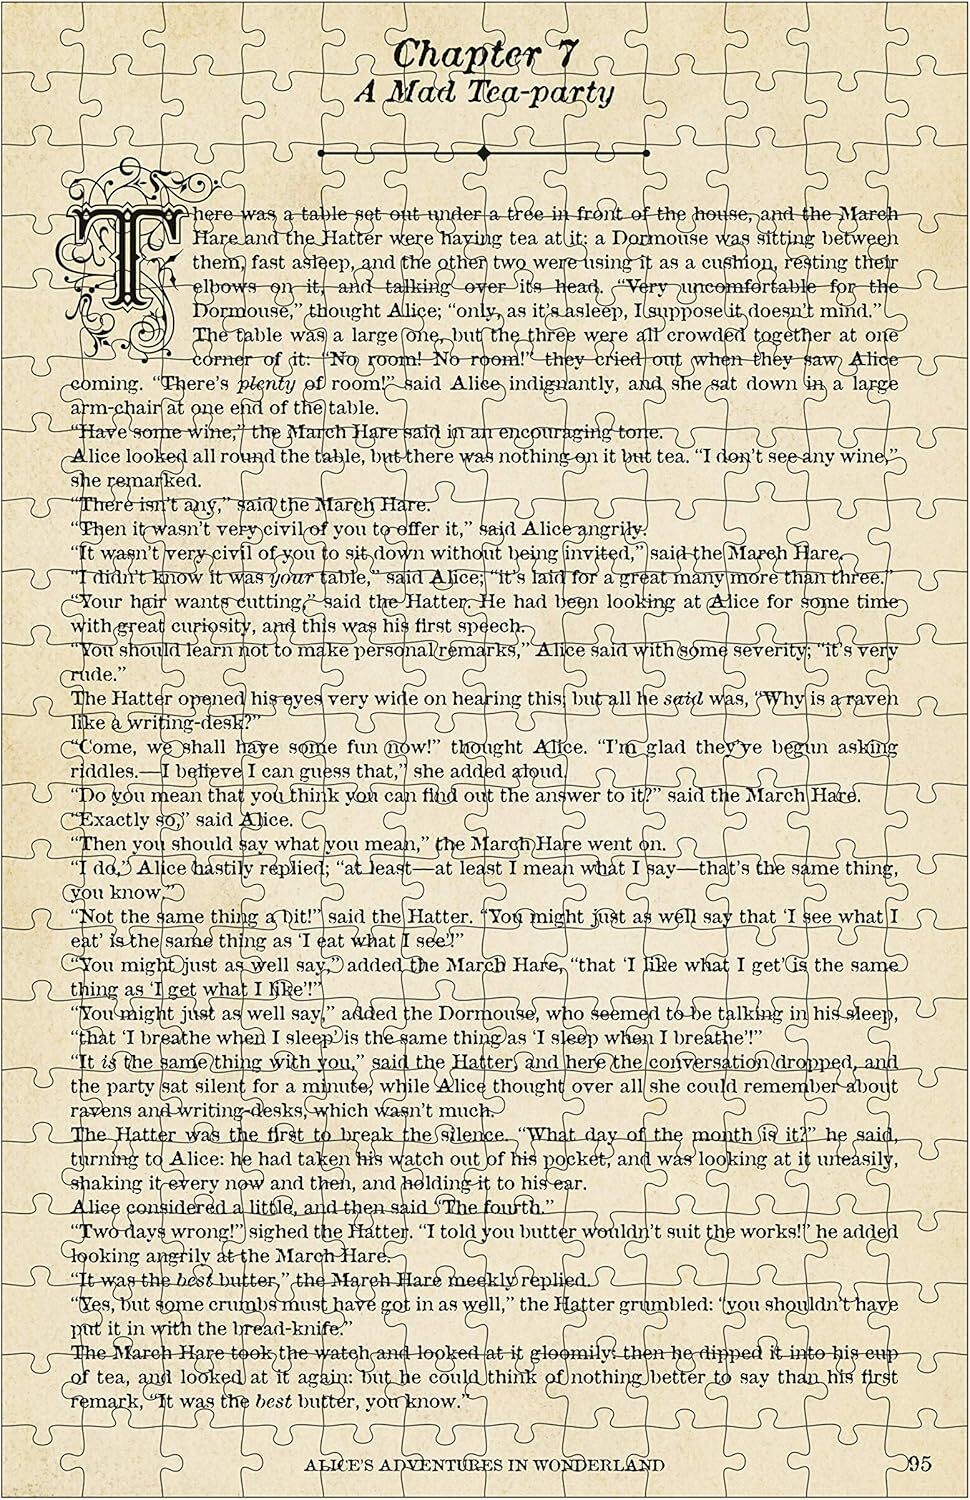 Chapter 7
A Mad Tea-party
There was a table set out under a tree in front of the house, and the March
Hare and the Hatter were having tea at it: a Dormouse was sitting between
them, fast asleep, and the other two were using it as a cushion, resting their
elbows on it, and talking over its head. “Very uncomfortable for the
Dormouse,” thought Alice; “only, as it’s asleep, I suppose it doesn’t mind.”
The table was a large one, but the three were all crowded together at one
corner of it: “No room! No room!” they cried out when they saw Alice
coming. “There’s plenty of room!” said Alice indignantly, and she sat down in a large
arm-chair at one end of the table.
“Have some wine,” the March Hare said in an encouraging tone.
Alice looked all round the table, but there was nothing on it but tea. “I don’t see any wine,”
she remarked.
“There isn’t any,” said the March Hare.
“Then it wasn’t very civil of you to offer it,” said Alice angrily.
“It wasn’t very civil of you to sit down without being invited,” said the March Hare.
“I didn’t know it was your table,” said Alice; “it’s laid for a great many more than three.”
“Your hair wants cutting,” said the Hatter. He had been looking at Alice for some time
with great curiosity, and this was his first speech.
“You should learn not to make personal remarks,” Alice said with some severity; “it’s very
rude.”
The Hatter opened his eyes very wide on hearing this; but all he said was, “Why is a raven
like a writing-desk?”
“Come, we shall have some fun now!” thought Alice. “I’m glad they’ve begun asking
riddles.—I believe I can guess that,” she added aloud.
“Do you mean that you think you can find out the answer to it?” said the March Hare.
“Exactly so,” said Alice.
“Then you should say what you mean,” the March Hare went on.
“I do,” Alice hastily replied; “at least—at least I mean what I say—that’s the same thing,
you know.”
“Not the same thing a bit!” said the Hatter. “You might just as well say that ‘I see what I
eat’ is the same thing as ‘I eat what I see’!”
“You might just as well say,” added the March Hare, “that ‘I like what I get’ is the same
thing as ‘I get what I like’!”
“You might just as well say,” added the Dormouse, who seemed to be talking in his sleep,
“that ‘I breathe when I sleep’ is the same thing as ‘I sleep when I breathe’!”
“It is the same thing with you,” said the Hatter, and here the conversation dropped, and
the party sat silent for a minute, while Alice thought over all she could remember about
ravens and writing-desks, which wasn’t much.
The Hatter was the first to break the silence. “What day of the month is it?” he said,
turning to Alice: he had taken his watch out of his pocket, and was looking at it uneasily,
shaking it every now and then, and holding it to his ear.
Alice considered a little, and then said “The fourth.”
“Two days wrong!” sighed the Hatter. “I told you butter wouldn’t suit the works!” he added
looking angrily at the March Hare.
“It was the best butter,” the March Hare meekly replied.
“Yes, but some crumbs must have got in as well,” the Hatter grumbled: “you shouldn’t have
put it in with the bread-knife.”
The March Hare took the watch and looked at it gloomily: then he dipped it into his cup
of tea, and looked at it again: but he could think of nothing better to say than his first
remark, “It was the best butter, you know.”
ALICE’S ADVENTURES IN WONDERLAND
95